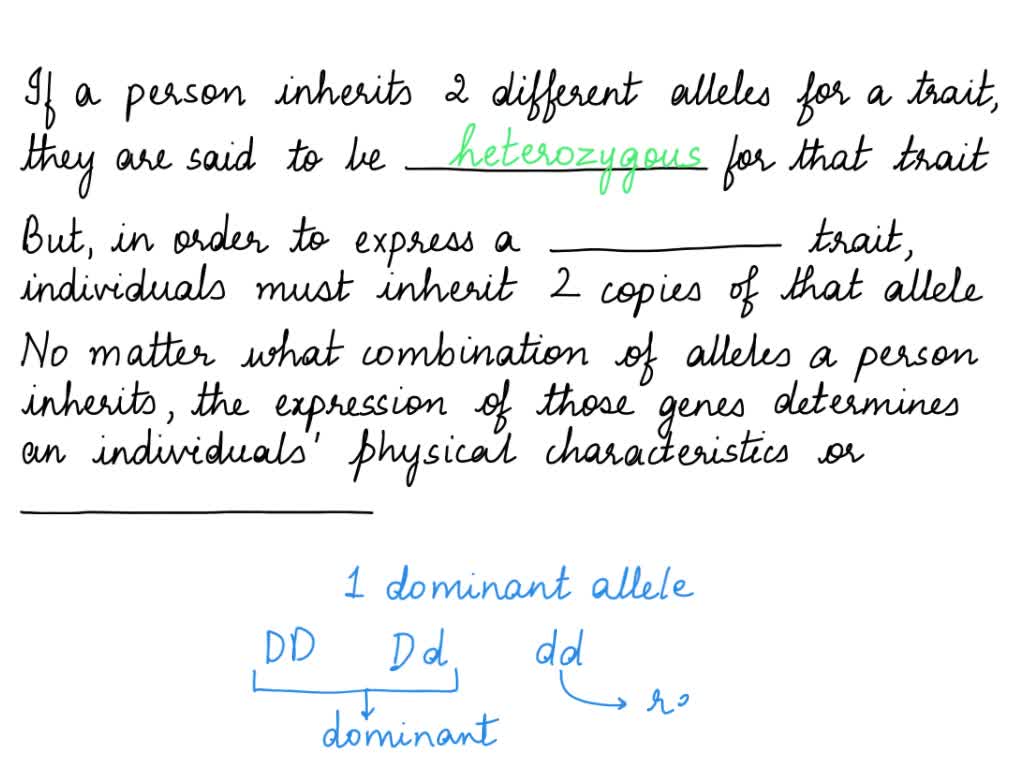 If a person inherits 2 different alleles for a trait,
they are said to be heterozygous for that trait
But, in order to express a __________ trait,
individuals must inherit 2 copies of that allele
No matter what combination of alleles a person
inherits, the expression of those genes determines
an individuals' physical characteristics or
__________
1 dominant allele
DD Dd dd
dominant